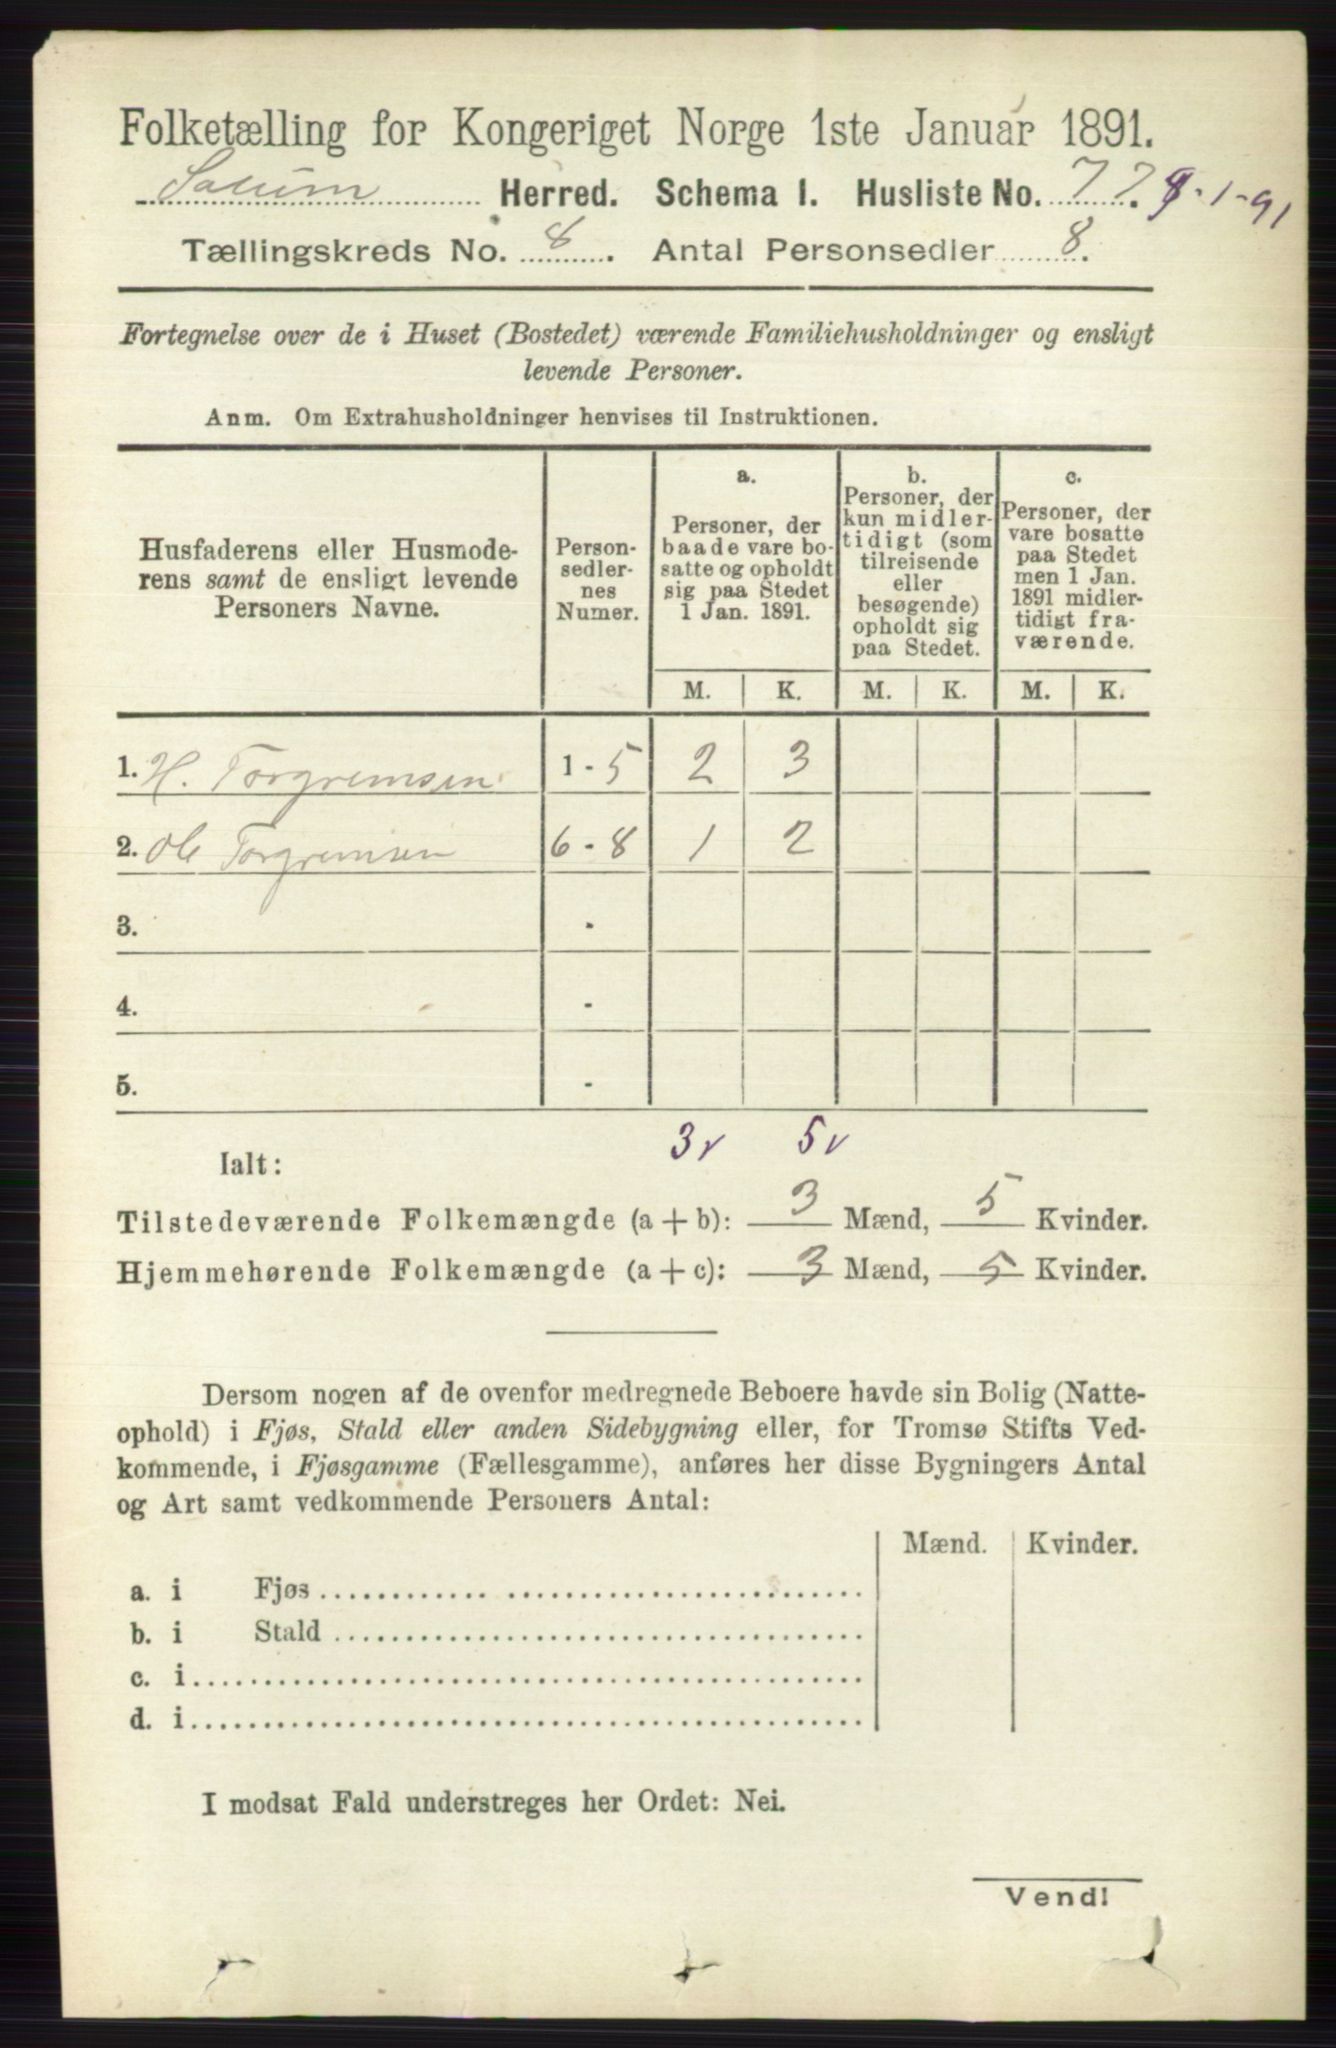 Folketælling for Kongeriget Norge 1ste Januar 1891.
Solum Herred. Schema I. Husliste No. 77. 9-1-91
Tællingskreds No. 8. Antal Personsedler 8.
Fortegnelse over de i Huset (Bostedet) værende Familiehusholdninger og ensligt
levende Personer.
Anm. Om Extrahusholdninger henvises til Instruktionen.
Husfaderens eller Husmode-
rens samt de ensligt levende
Personers Navne.
Person-
sedler-
nes
Numer.
a.
Personer, der
baade vare bo-
satte og opholdt
sig paa Stedet
1 Jan. 1891.
b.
Personer, der
kun midler-
tidigt (som
tilreisende
eller
besøgende)
opholdt sig
paa Stedet.
c.
Personer, der
vare bosatte
paa Stedet
men 1 Jan.
1891 midler-
tidigt fra-
værende.
M. K. M. K. M. K.
1. H. Torgremsen 1-5 2 3
2. Ole Torgremsen 6-8 1 2
3. -
4. -
5. -
3 v 5 v
Ialt:
Tilstedeværende Folkemængde (a + b): 3 Mænd, 5 Kvinder.
Hjemmehørende Folkemængde (a + c): 3 Mænd, 5 Kvinder.
Dersom nogen af de ovenfor medregnede Beboere havde sin Bolig (Natte-
ophold) i Fjøs, Stald eller anden Sidebygning eller, for Tromsø Stifts Ved-
kommende, i Fjøsgamme (Fællesgamme), anføres her disse Bygningers Antal
og Art samt vedkommende Personers Antal:
Mænd. Kvinder.
a. i Fjøs
b. i Stald
c. i
d. i
I modsat Fald understreges her Ordet: Nei.
Vend!